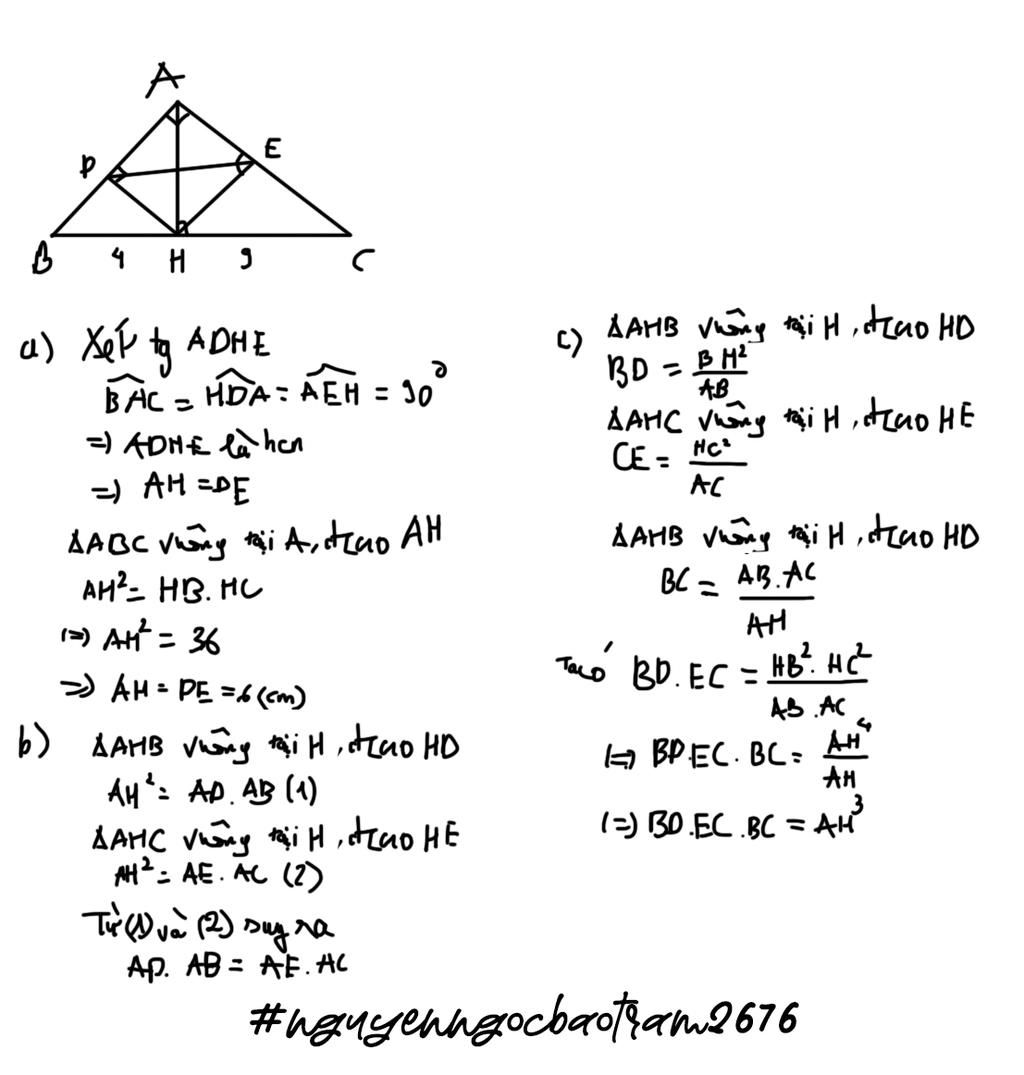 A
D
E
B 4 H 9 C
a) Xét tg ADHE
B̂AC = ĤDA = ÂEH = 90°
=> ADHE là hcn
=> AH = DE
ΔABC vuông tại A, đcao AH
AH² = HB. HC
(=) AH² = 36
=> AH = DE = 6 (cm)
b) ΔAHB vuông tại H, đcao HD
AH² = AD. AB (1)
ΔAHC vuông tại H, đcao HE
AH² = AE. AC (2)
Từ (1) và (2) suy ra
AD. AB = AE. AC
c) ΔAHB vuông tại H, đcao HD
BD = BH²/AB
ΔAHC vuông tại H, đcao HE
CE = HC²/AC
ΔAHB vuông tại H, đcao HD
BC = AB. AC/AH
Ta có BD. EC = HB². HC²/AB. AC
(=) BD. EC. BC = AH⁴/AH
(=) BD. EC. BC = AH³
#nguyenngocbaotram2676